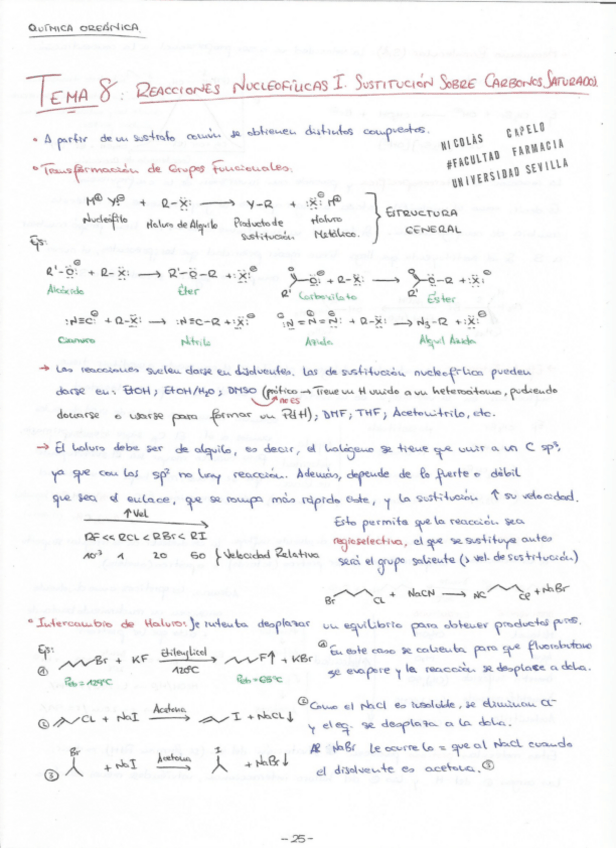 QUÍMICA ORGÁNICA.
TEMA 8: REACCIONES NUCLEOFÍLICAS I. SUSTITUCIÓN SOBRE CARBONOS SATURADOS.
• A partir de un sustrato común se obtienen distintos compuestos.
NICOLÁS CAPELO
#FACULTAD FARMACIA
UNIVERSIDAD SEVILLA
• Transformación de Grupos Funcionales:
M⊕ Y:⊖ + R-X: ⟶ Y-R + :X:⊖ M⊕
Nucleófilo Haluro de Alquilo Producto de sustitución. Haluro Metálico.
ESTRUCTURA GENERAL
Ejs:
R'-O:⊖ + R-X: ⟶ R'-O-R + :X:⊖
Alcóxido Éter
R' O:⊖ + R-X: ⟶ R' O-R + :X:⊖
Carboxilato Éster
:N≡C:⊖ + R-X: ⟶ :N≡C-R + :X:⊖
Cianuro Nitrilo
:N=N=N:⊖ + R-X: ⟶ N₃-R + :X:⊖
Azida Alquil Azida
→ Las reacciones suelen darse en disolventes. Las de sustitución nucleofílica pueden
darse en: EtOH; EtOH/H₂O; DMSO (prótico → Tiene un H unido a un heteroátomo, pudiendo
no es
donarse o usarse para formar un PdH); DMF; THF; Acetonitrilo, etc.
→ El haluro debe ser de alquilo, es decir, el halógeno se tiene que unir a un C sp³,
ya que con los sp² no hay reacción. Además, depende de lo fuerte o débil
que sea el enlace, que se rompa más rápido este, y la sustitución ↑ su velocidad.
↑ Vel
RF << RCl < RBr < RI
10⁻³ 1 20 50 } Velocidad Relativa
Esto permite que la reacción sea
regioselectiva, el que se sustituye antes
será el grupo saliente (> vel. de sustitución)
Br Cl + NaCN ⟶ NC Cl + NaBr
• Intercambio de Haluros: Se intenta desplazar un equilibrio para obtener productos puros.
Ejs:
① Br + KF ⟶ F↑ + KBr
Etilenglicol
120ºC
① En este caso se calienta para que fluorobutano
se evapore y la reacción se desplace a dcha.
② Cl + NaI ⟶ I + NaCl↓
Acetona
② Como el NaCl es insoluble, se eliminan Cl⁻
y el eq. se desplaza a la dcha.
③ Br + NaI ⟶ I + NaBr↓
Acetona
Al NaBr le ocurre lo = que al NaCl cuando
el disolvente es acetona. ③
-25-